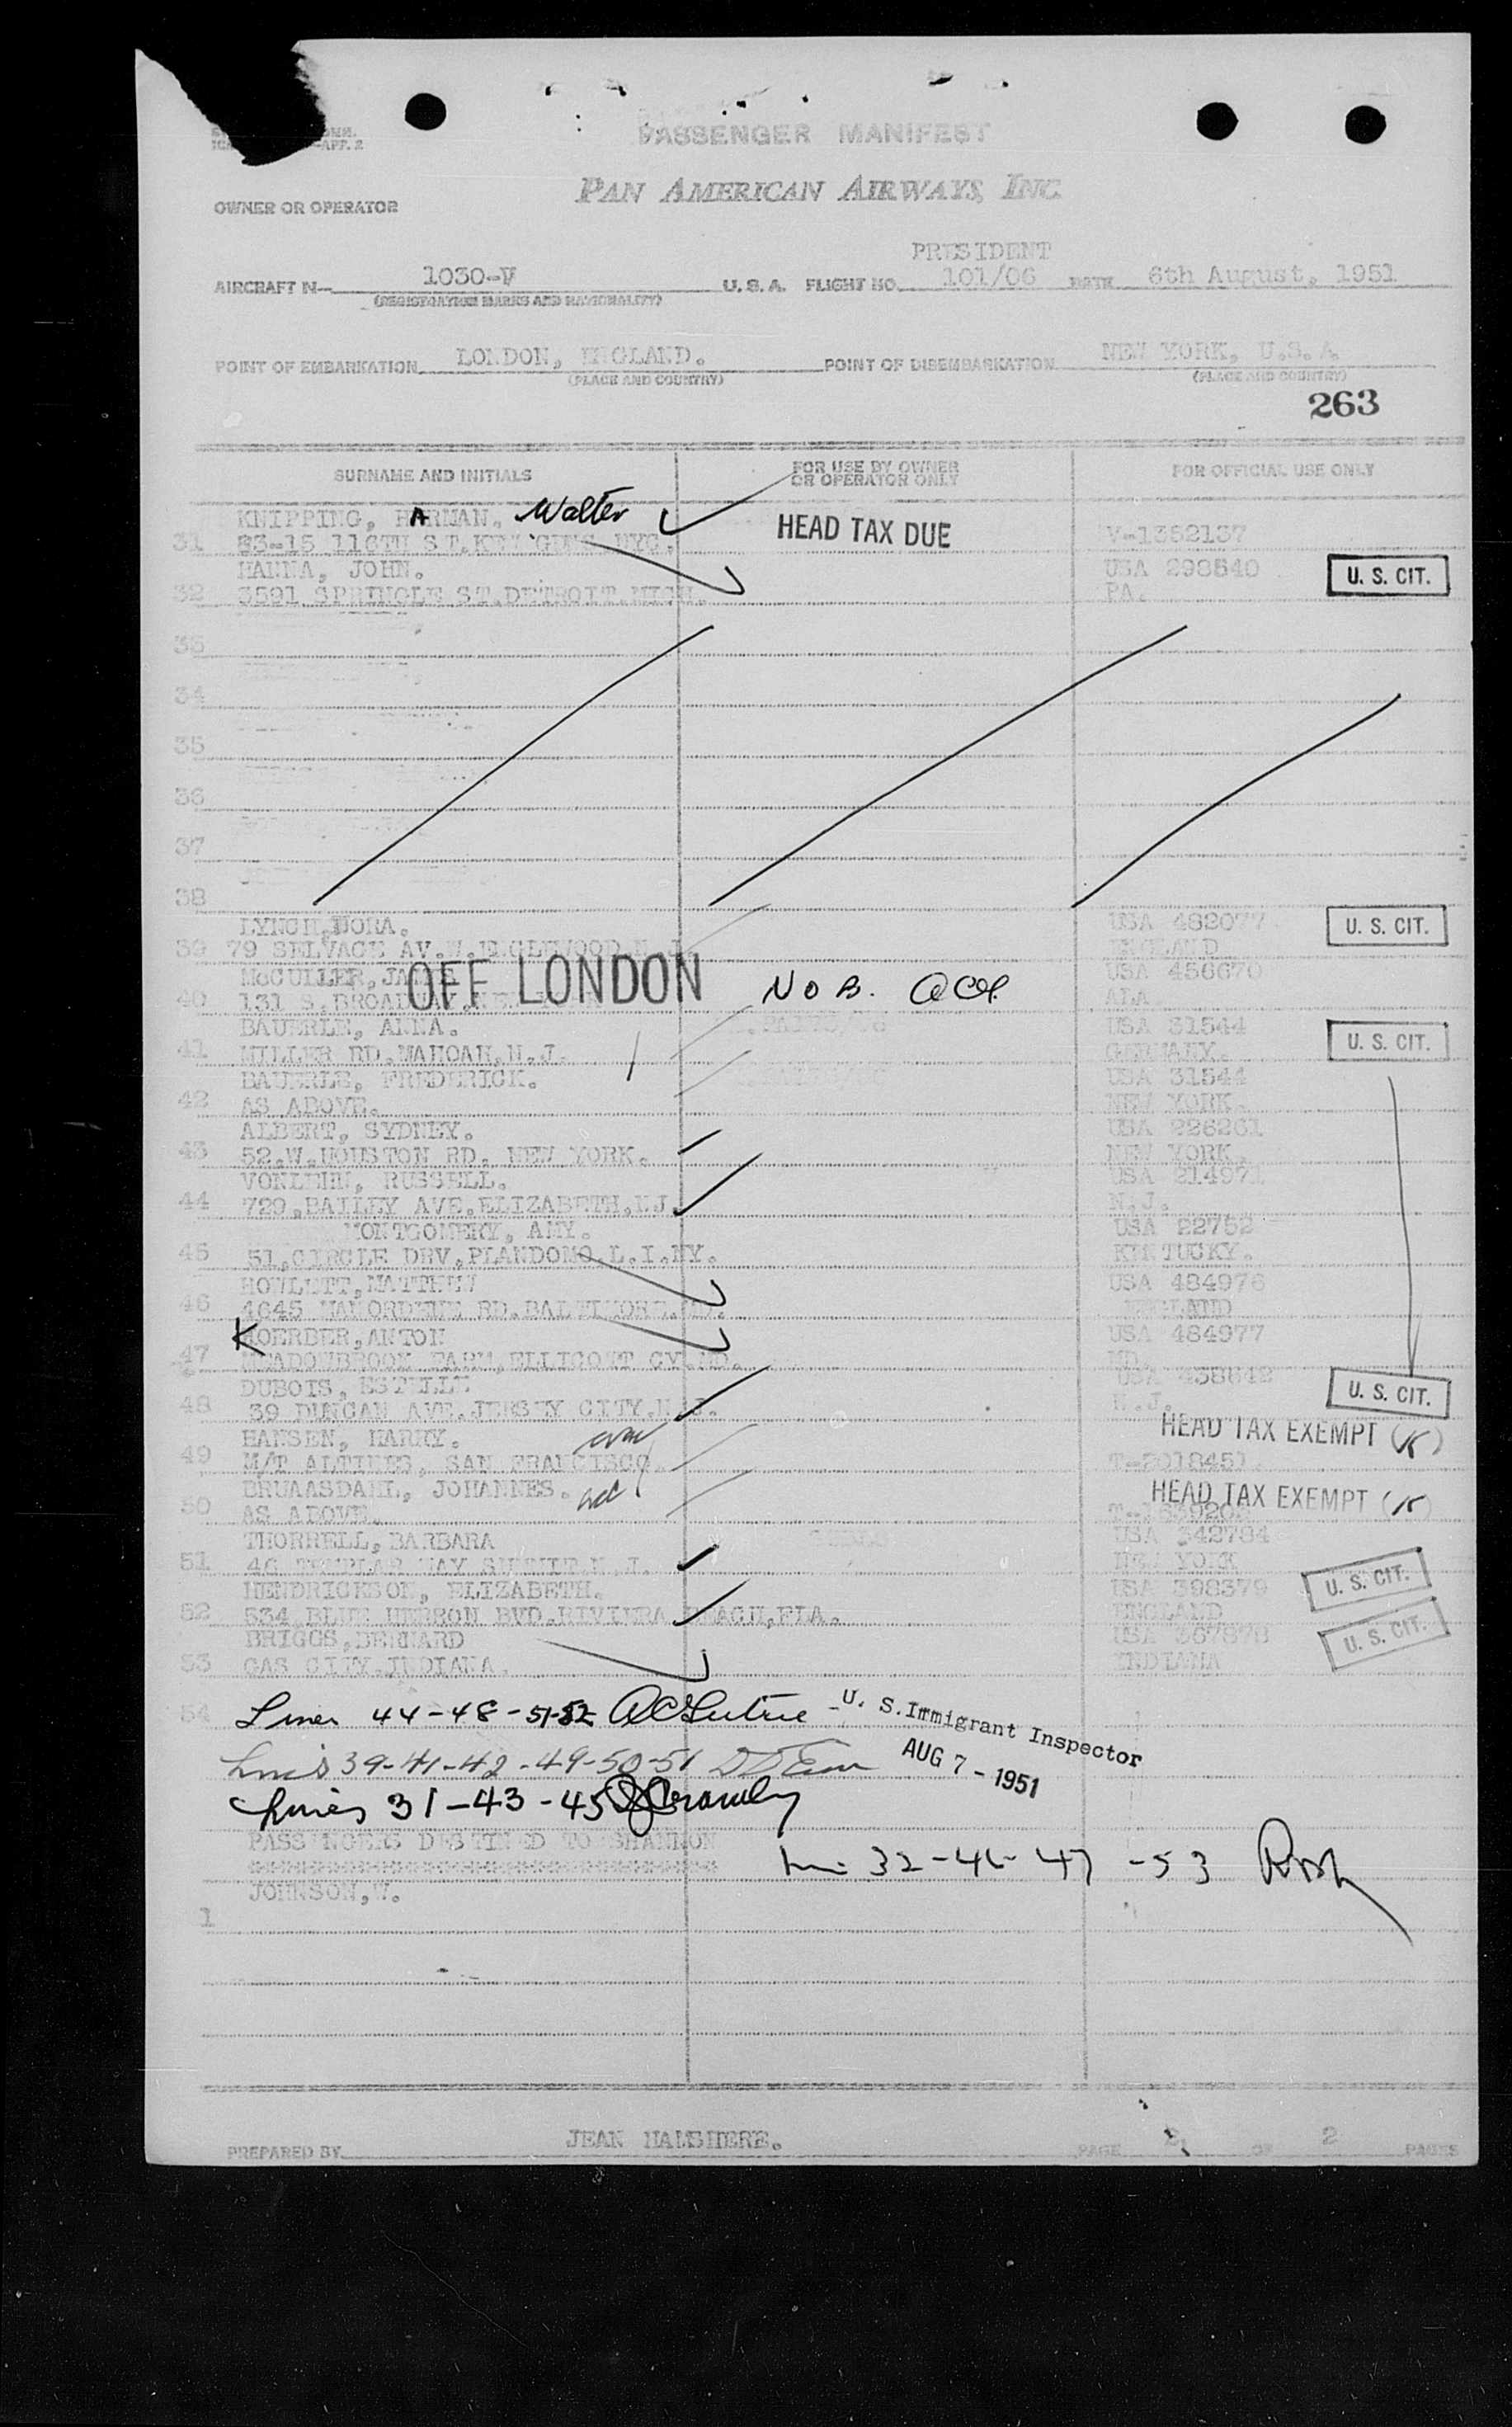 PASSENGER MANIFEST
PAN AMERICAN AIRWAYS, INC.
OWNER OR OPERATOR
PRESIDENT
AIRCRAFT N- 1030-V U.S.A. FLIGHT NO. 101/06 DATE 6th August, 1951
(REGISTRATION MARKS AND NATIONALITY)
POINT OF EMBARKATION LONDON, ENGLAND. POINT OF DISEMBARKATION NEW YORK, U.S.A.
(PLACE AND COUNTRY) (PLACE AND COUNTRY)
263
SURNAME AND INITIALS FOR USE BY OWNER OR OPERATOR ONLY FOR OFFICIAL USE ONLY
KNIPPING, HARMAN. Walter HEAD TAX DUE V-1352137
31 83-15 116TH ST. NYC.
HANNA, JOHN. USA 298540 U. S. CIT.
32 3591 SPRINGLE ST.DETROIT.MICH. PA.
33
34
35
36
37
38
LYNCH, DORA. USA 482077 U. S. CIT.
39 79 SELVAGE AV.W.ENGLEWOOD.N.J. ENGLAND
McCULLER, JAMES USA 456670
40 131 S.BROADWAY. OFF LONDON NOB. ALA.
BAUERLE, ANNA. USA 31544 U. S. CIT.
41 MILLER RD.MAHOAH,N.J. GERMANY.
BAUERLE, FREDERICK. USA 31544
42 AS ABOVE. NEW YORK.
ALBERT, SYDNEY. USA 226261
43 52.W.HOUSTON RD. NEW YORK. NEW YORK.
RUSSELL. USA 214971
44 729,BAILEY AVE.ELIZABETH.NJ. N.J.
MONTGOMERY, AMY. USA 22752
45 51,CIRCLE DRV.PLANDOME.L.I.NY. KENTUCKY.
HOWLETT,MATTHEW USA 484976
46 4645 MANORDENE RD.BALTIMORE.MD. ENGLAND
KOERBER,ANTON USA 484977
47 MEADOWBROOK FARM,ELLICOTT CY.MD. MD.
DUBOIS, ESTELLE USA 438642 U. S. CIT.
48 39 DUNCAN AVE.JERSEY CITY.N.J. N.J.
HANSEN, HARRY. HEAD TAX EXEMPT
49 M/T ALTINES, SAN FRANCISCO. T-2018451.
BRUAASDAHL, JOHANNES. HEAD TAX EXEMPT
50 AS ABOVE.
THORRELL, BARBARA USA 342784
51 46 TEMPLAR WAY SUMMIT.N.J. NEW YORK
HENDRICKSON, ELIZABETH. USA 398379 U. S. CIT.
52 534 BLUE HERRON BVD.RIVIERA BEACH,FLA. ENGLAND
BRIGGS,BERNARD USA 367878 U. S. CIT.
53 GAS CITY.INDIANA. INDIANA
54 Lines 44-48-51-52 U. S. Immigrant Inspector
Lines 39-41-42-49-50-51 AUG 7 - 1951
Lines 31-43-45
PASSENGERS DESTINED TO SHANNON
32-46-47-53
JOHNSON,W.
1
PREPARED BY JEAN PAGE 2 OF 2 PAGES